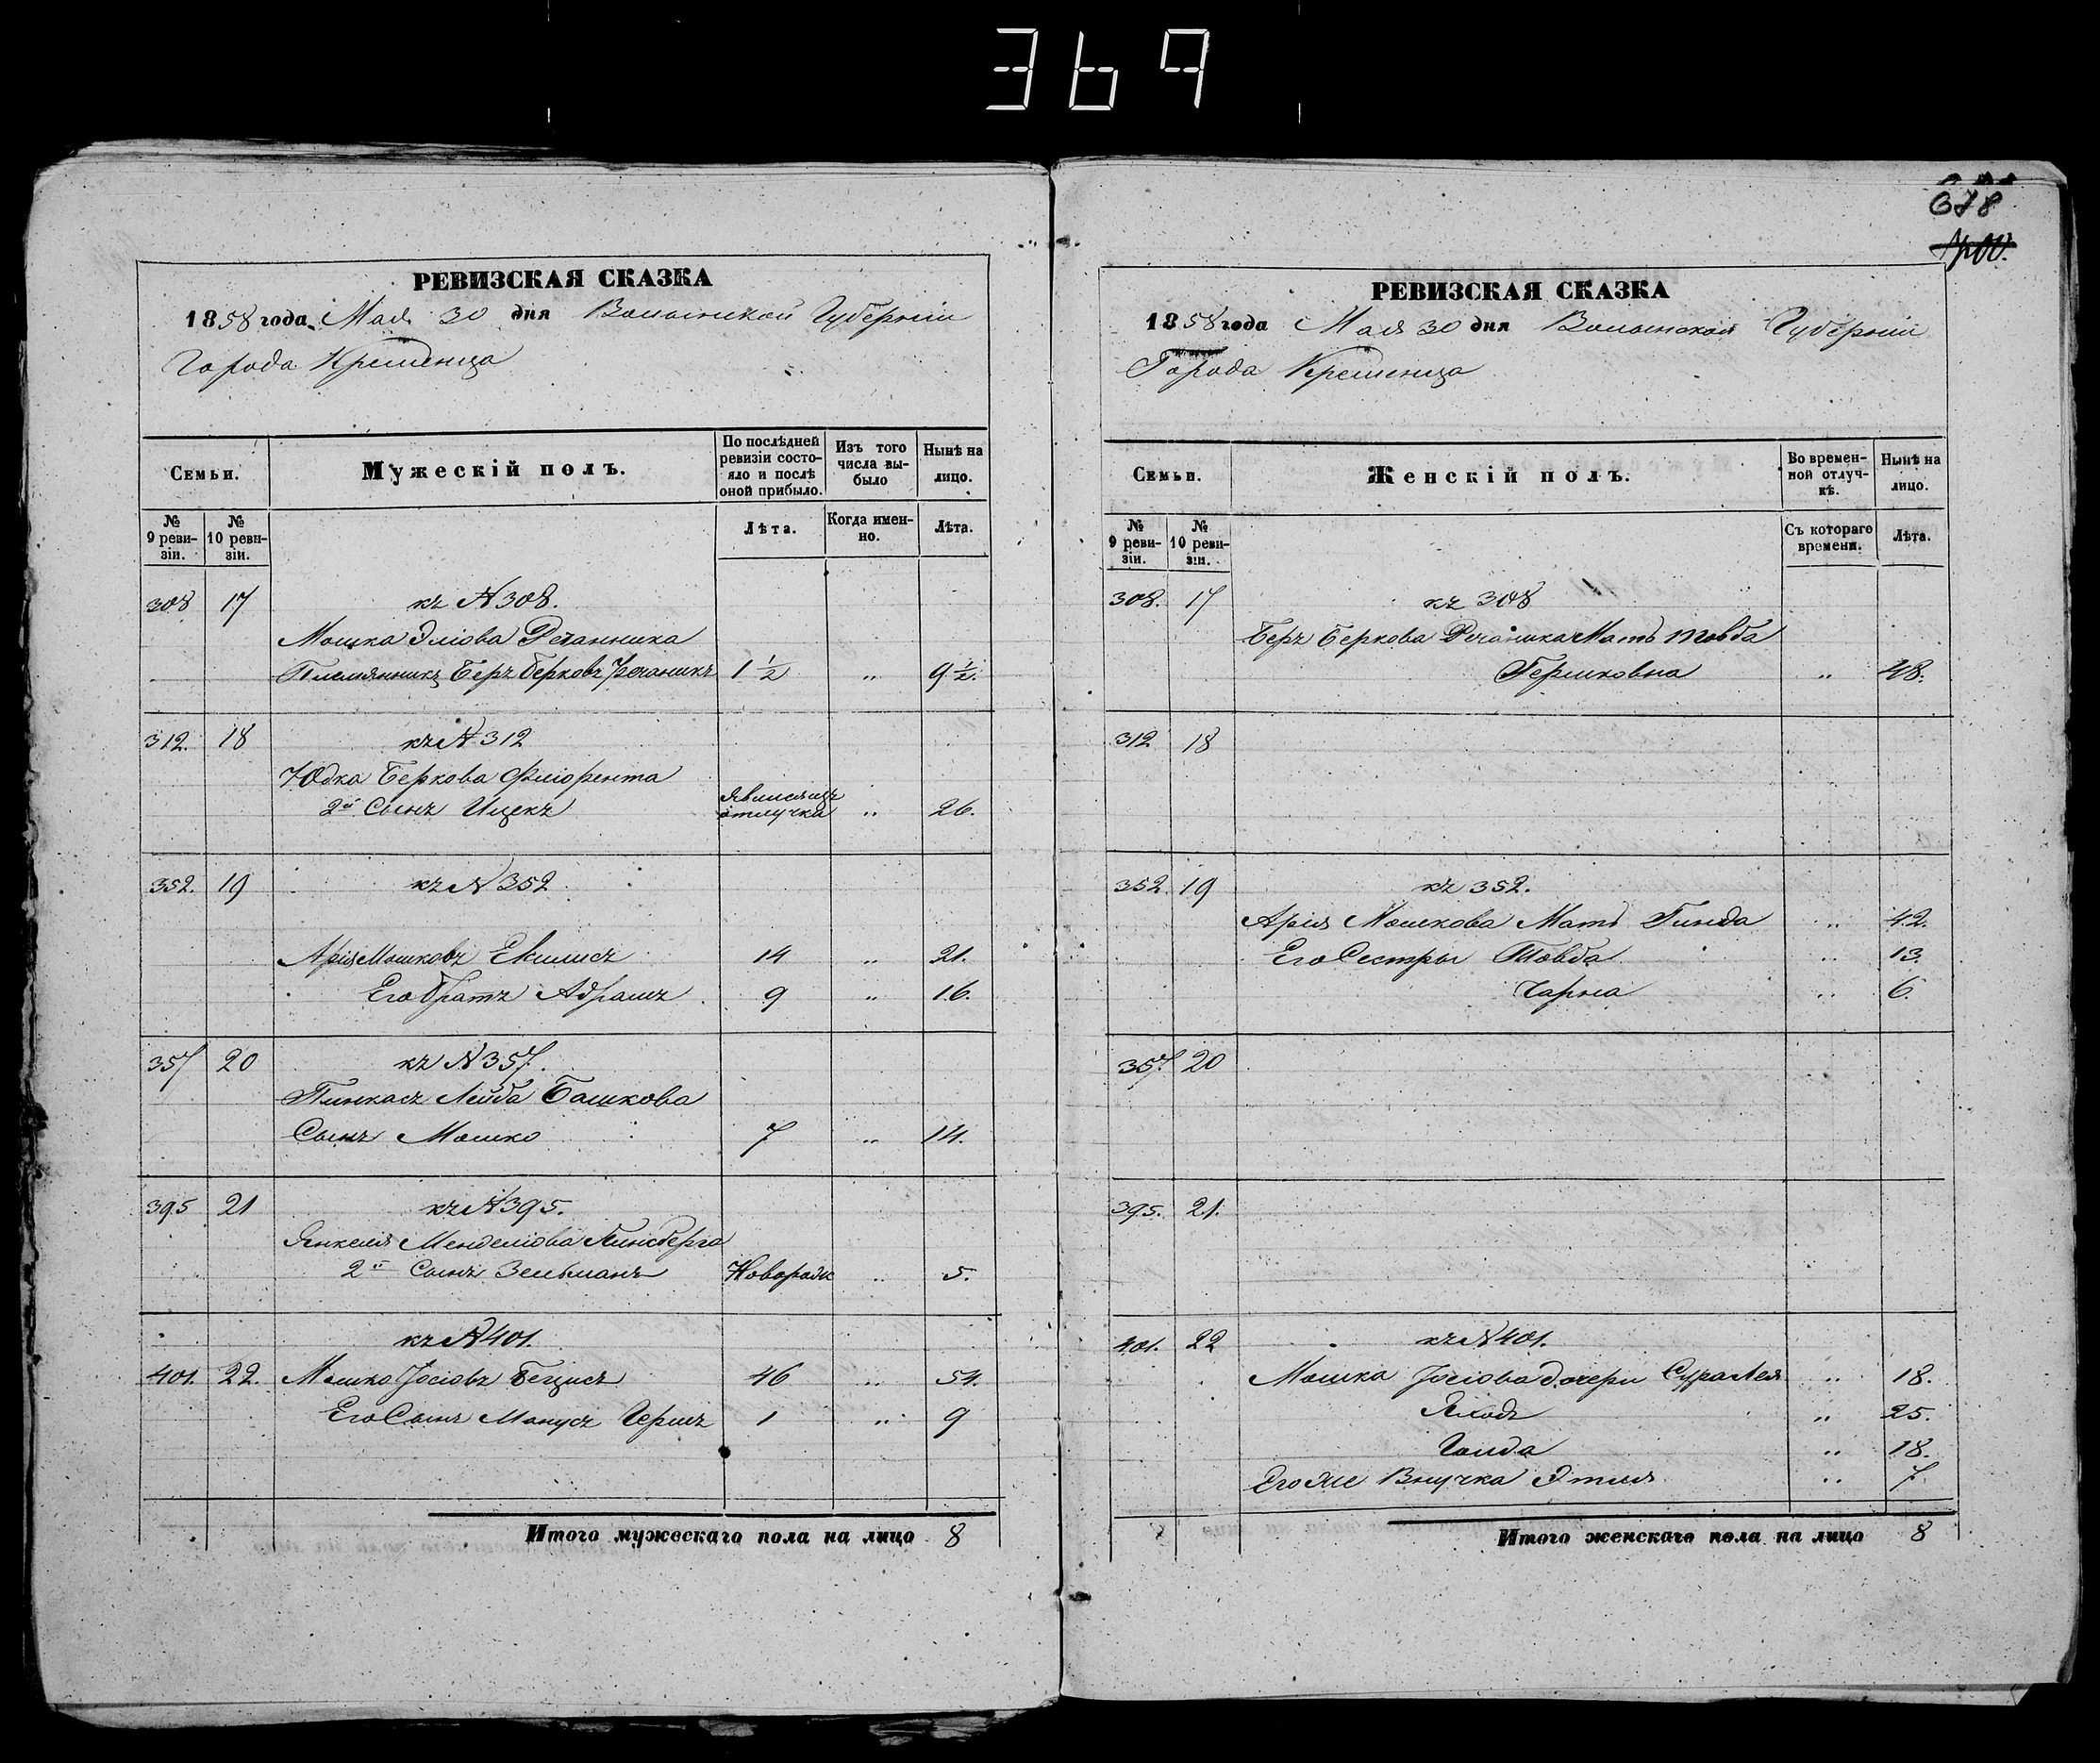 369
678
РЕВИЗСКАЯ СКАЗКА
1858 года Мая 30 дня Волынской Губерніи
Города Кременца
Семьи.
Мужескій полъ.
По послѣдней ревизіи состояло и послѣ оной прибыло.
Изъ того числа выбыло
Нынѣ на лицо.
№ 9 ревизіи.
№ 10 ревизіи.
Лѣта.
Когда именно.
Лѣта.
308 17 къ № 308.
Мошка Эліова Речанника
Племянникъ Беръ Берковъ Речаникъ 1½ " 9½.
312. 18 къ № 312
Юдка Беркова Фліорента
2й Сынъ Ицекъ отлучка " 26.
352. 19 къ № 352
Арія Мошковъ 14 " 21.
Его братъ Абрамъ 9 " 16.
357 20 къ № 357.
Пинкасъ Лейба Башкова
Сынъ Мошко 7 " 14.
395 21 къ № 395.
Янкеля Менделіова Гинсберга
2й Сынъ Зельманъ Новорожд " 5.
къ № 401.
401. 22. Мошко Іосіовъ 46 " 54.
Его Сынъ Манусъ Гершъ 1 " 9
Итого мужескаго пола на лицо 8
РЕВИЗСКАЯ СКАЗКА
1858 года Мая 30 дня Волынской Губерніи
Города Кременца
Семьи.
Женскій полъ.
Во временной отлучкѣ.
Нынѣ на лицо.
№ 9 ревизіи.
№ 10 ревизіи.
Съ котораго времени.
Лѣта.
308. 17 къ 308
Беръ Беркова Речаника Мать Товба
Гершковна " 48.
312 18
352 19 къ 352.
Арія Мошкова Мать Гинда " 42.
Его Сестры Товба " 13.
Чарна " 6.
357. 20
395. 21.
401. 22 къ № 401.
Мошка Іосіова дочери Сура Лея " 18.
" 25.
Голда " 18.
Его же Внучка Этля " 7
Итого женскаго пола на лицо 8